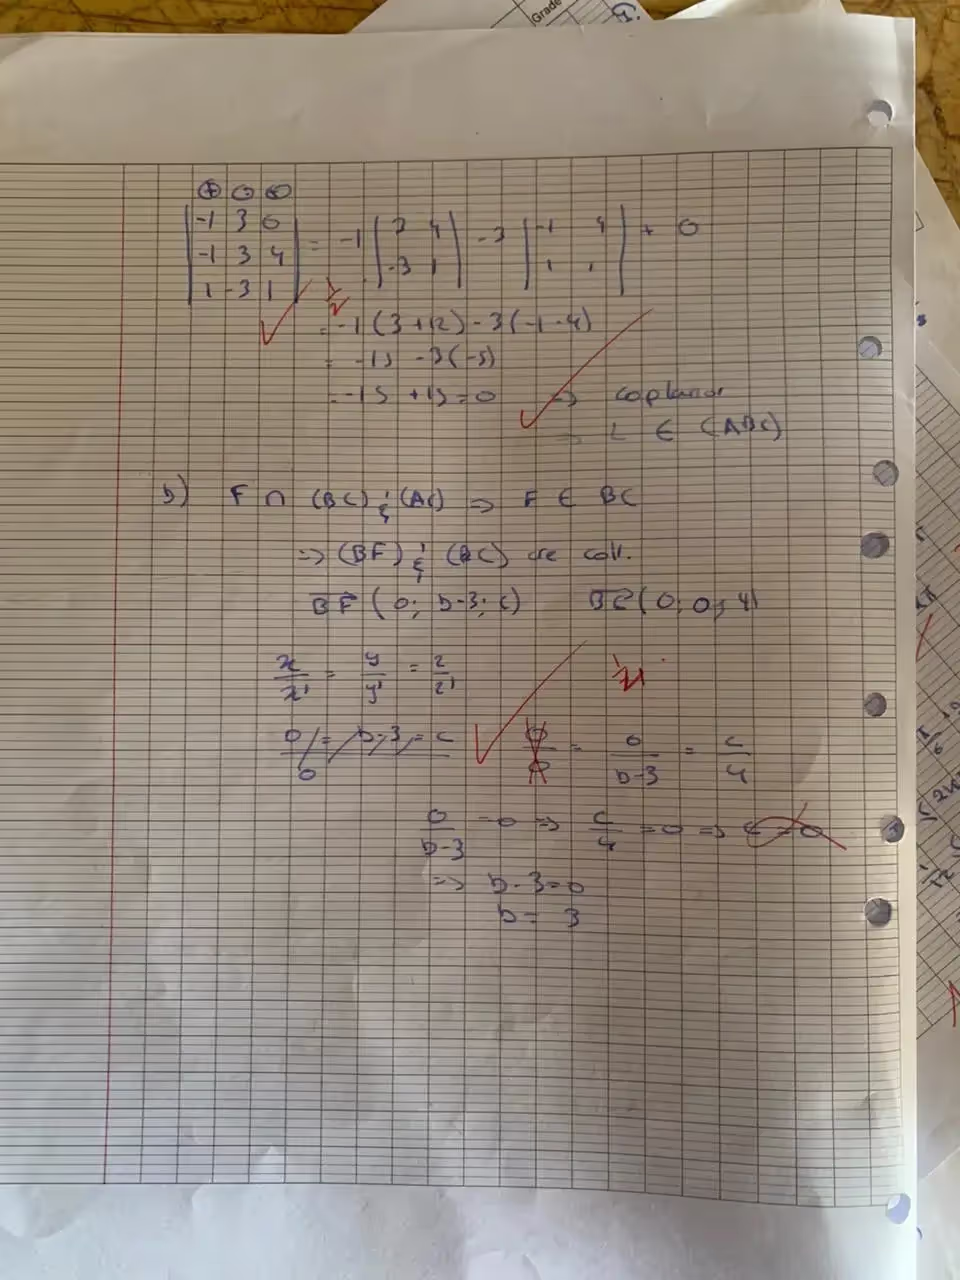 Grade
⊕ ⊖ ⊕
|-1 3 0|
|-1 3 4| = -1 |3 4| -3 |-1 4| + 0
|1 -3 1| |-3 1| |1 1|
1/2
= -1 (3+12) - 3(-1-4)
= -15 -3(-5)
= -15 +15 = 0 ⇒ coplanar
⇒ L ∈ (ABC)
b) F ∩ (BC) & (AC) ⇒ F ∈ BC
⇒ (BF) & (BC) are coll.
BF (0; b-3; c) BC (0; 0; 4)
x/x' = y/y' = z/z'
1/2
0/0 = b-3 = c
0/0 = 0/b-3 = c/4
0/b-3 = 0 ⇒ c/4 = 0 ⇒ c = 0
⇒ b-3=0
b = 3